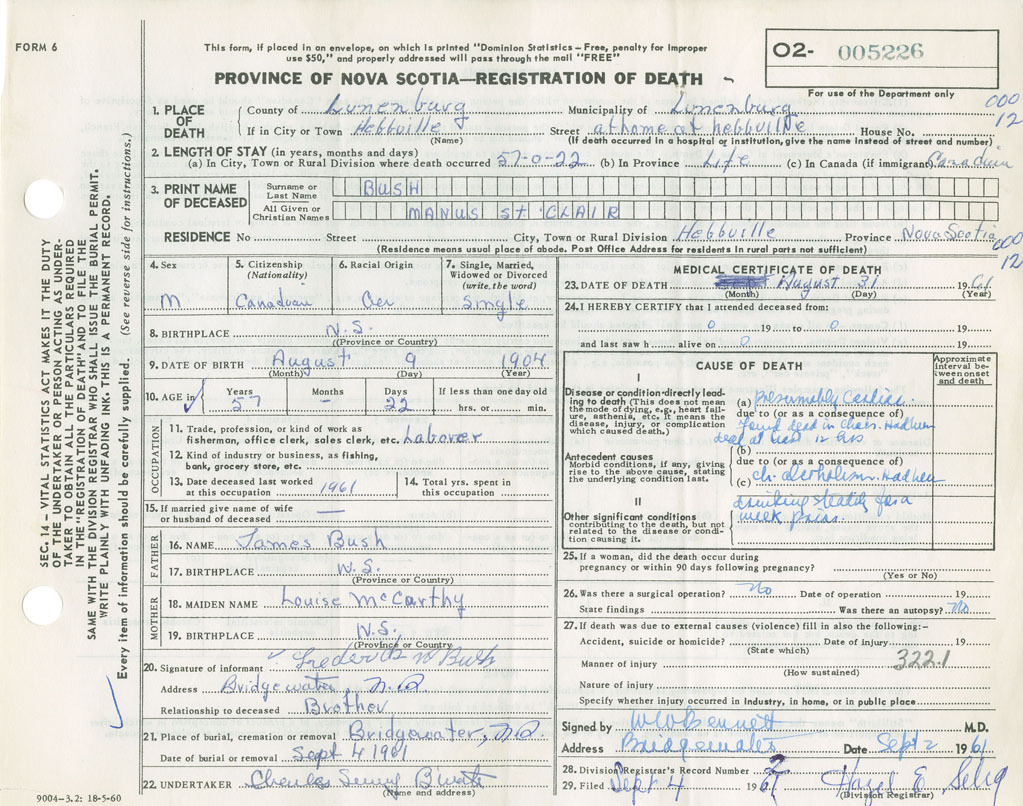 FORM 6
This form, if placed in an envelope, on which is printed "Dominion Statistics – Free, penalty for improper
use $50," and properly addressed will pass through the mail "FREE"
PROVINCE OF NOVA SCOTIA—REGISTRATION OF DEATH
O2- 005226
For use of the Department only
000
12
1. PLACE OF DEATH
County of Lunenburg Municipality of Lunenburg
If in City or Town Hebbville Street at home at hebbville House No.
(Name) (If death occurred in a hospital or institution, give the name instead of street and number)
2. LENGTH OF STAY (in years, months and days)
(a) In City, Town or Rural Division where death occurred 57-0-22 (b) In Province Life (c) In Canada (if immigrant) Canadian
3. PRINT NAME OF DECEASED
Surname or Last Name BUSH
All Given or Christian Names MANUS St. CLAIR
RESIDENCE No Street City, Town or Rural Division Hebbville Province Nova Scotia
(Residence means usual place of abode. Post Office Address for residents in rural parts not sufficient)
000
12
4. Sex M
5. Citizenship (Nationality) Canadian
6. Racial Origin Ger
7. Single, Married, Widowed or Divorced (write the word) Single
8. BIRTHPLACE N.S.
(Province or Country)
9. DATE OF BIRTH August 9 1904
(Month) (Day) (Year)
10. AGE in Years 57 Months - Days 22 If less than one day old hrs. or min.
OCCUPATION
11. Trade, profession, or kind of work as
fisherman, office clerk, sales clerk, etc. Laborer
12. Kind of industry or business, as fishing,
bank, grocery store, etc.
13. Date deceased last worked
at this occupation 1961
14. Total yrs. spent in
this occupation
15. If married give name of wife
or husband of deceased —
FATHER
16. NAME James Bush
17. BIRTHPLACE N.S.
(Province or Country)
MOTHER
18. MAIDEN NAME Louise McCarthy
19. BIRTHPLACE N.S.
(Province or Country)
20. Signature of informant Frederick W Bush
Address Bridgewater, N.S.
Relationship to deceased Brother
21. Place of burial, cremation or removal Bridgewater, N.S.
Date of burial or removal Sept 4 1961
22. UNDERTAKER
(Name and address)
9004-3.2: 18-5-60
MEDICAL CERTIFICATE OF DEATH
23. DATE OF DEATH August 31 1961
(Month) (Day) (Year)
24. I HEREBY CERTIFY that I attended deceased from:
0 19 to 0 19
and last saw h alive on 0 19
CAUSE OF DEATH
Approximate interval between onset and death
I
Disease or condition directly leading to death (This does not mean the mode of dying, e.g., heart failure, asthenia, etc. It means the disease, injury, or complication which caused death.)
(a) Presumably Cardiac
due to (or as a consequence of)
Found dead in chair. Had been
dead at least 12 hrs
(b)
Antecedent causes
Morbid conditions, if any, giving rise to the above cause, stating the underlying condition last.
due to (or as a consequence of)
(c) Ch. alcoholism. Had been
drinking steadily for a
week prior.
II
Other significant conditions
contributing to the death, but not related to the disease or condition causing it.
25. If a woman, did the death occur during
pregnancy or within 90 days following pregnancy?
(Yes or No)
26. Was there a surgical operation? No Date of operation 19
State findings Was there an autopsy? No
27. If death was due to external causes (violence) fill in also the following:–
Accident, suicide or homicide? Date of injury 19
(State which)
Manner of injury 322.1
(How sustained)
Nature of injury
Specify whether injury occurred in industry, in home, or in public place
Signed by W W Bennett M.D.
Address Bridgewater Date Sept 2 1961
28. Division Registrar's Record Number
29. Filed Sept 4 1961 Hazel E. Selig
(Division Registrar)
SEC. 14 – VITAL STATISTICS ACT MAKES IT THE DUTY
OF THE UNDERTAKER OR PERSON ACTING AS UNDER-
TAKER TO OBTAIN ALL THE PARTICULARS REQUIRED
IN THE "REGISTRATION OF DEATH" AND TO FILE THE
SAME WITH THE DIVISION REGISTRAR WHO SHALL ISSUE THE BURIAL PERMIT.
WRITE PLAINLY WITH UNFADING INK. THIS IS A PERMANENT RECORD.
Every item of information should be carefully supplied. (See reverse side for instructions.)